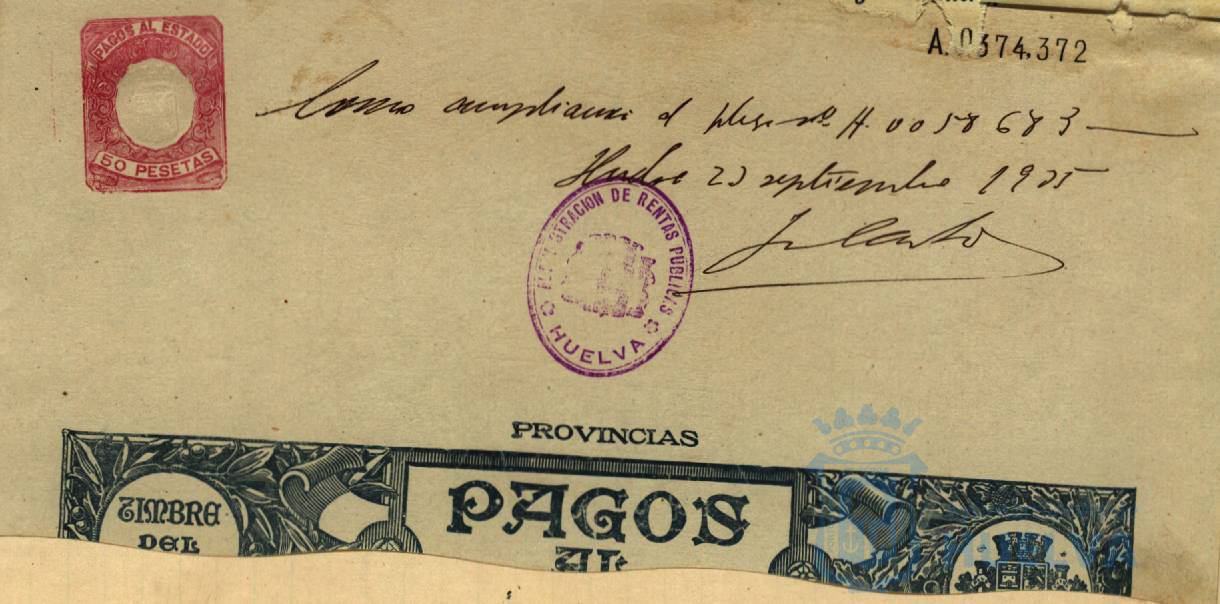 PAGOS AL ESTADO
50 PESETAS
A.0374,372
Como ampliación al pliego nº A. 0058683
Huelva 23 septiembre 1935
ADMINISTRACION DE RENTAS PUBLICAS
HUELVA
PROVINCIAS
TIMBRE
DEL
PAGOS
AL